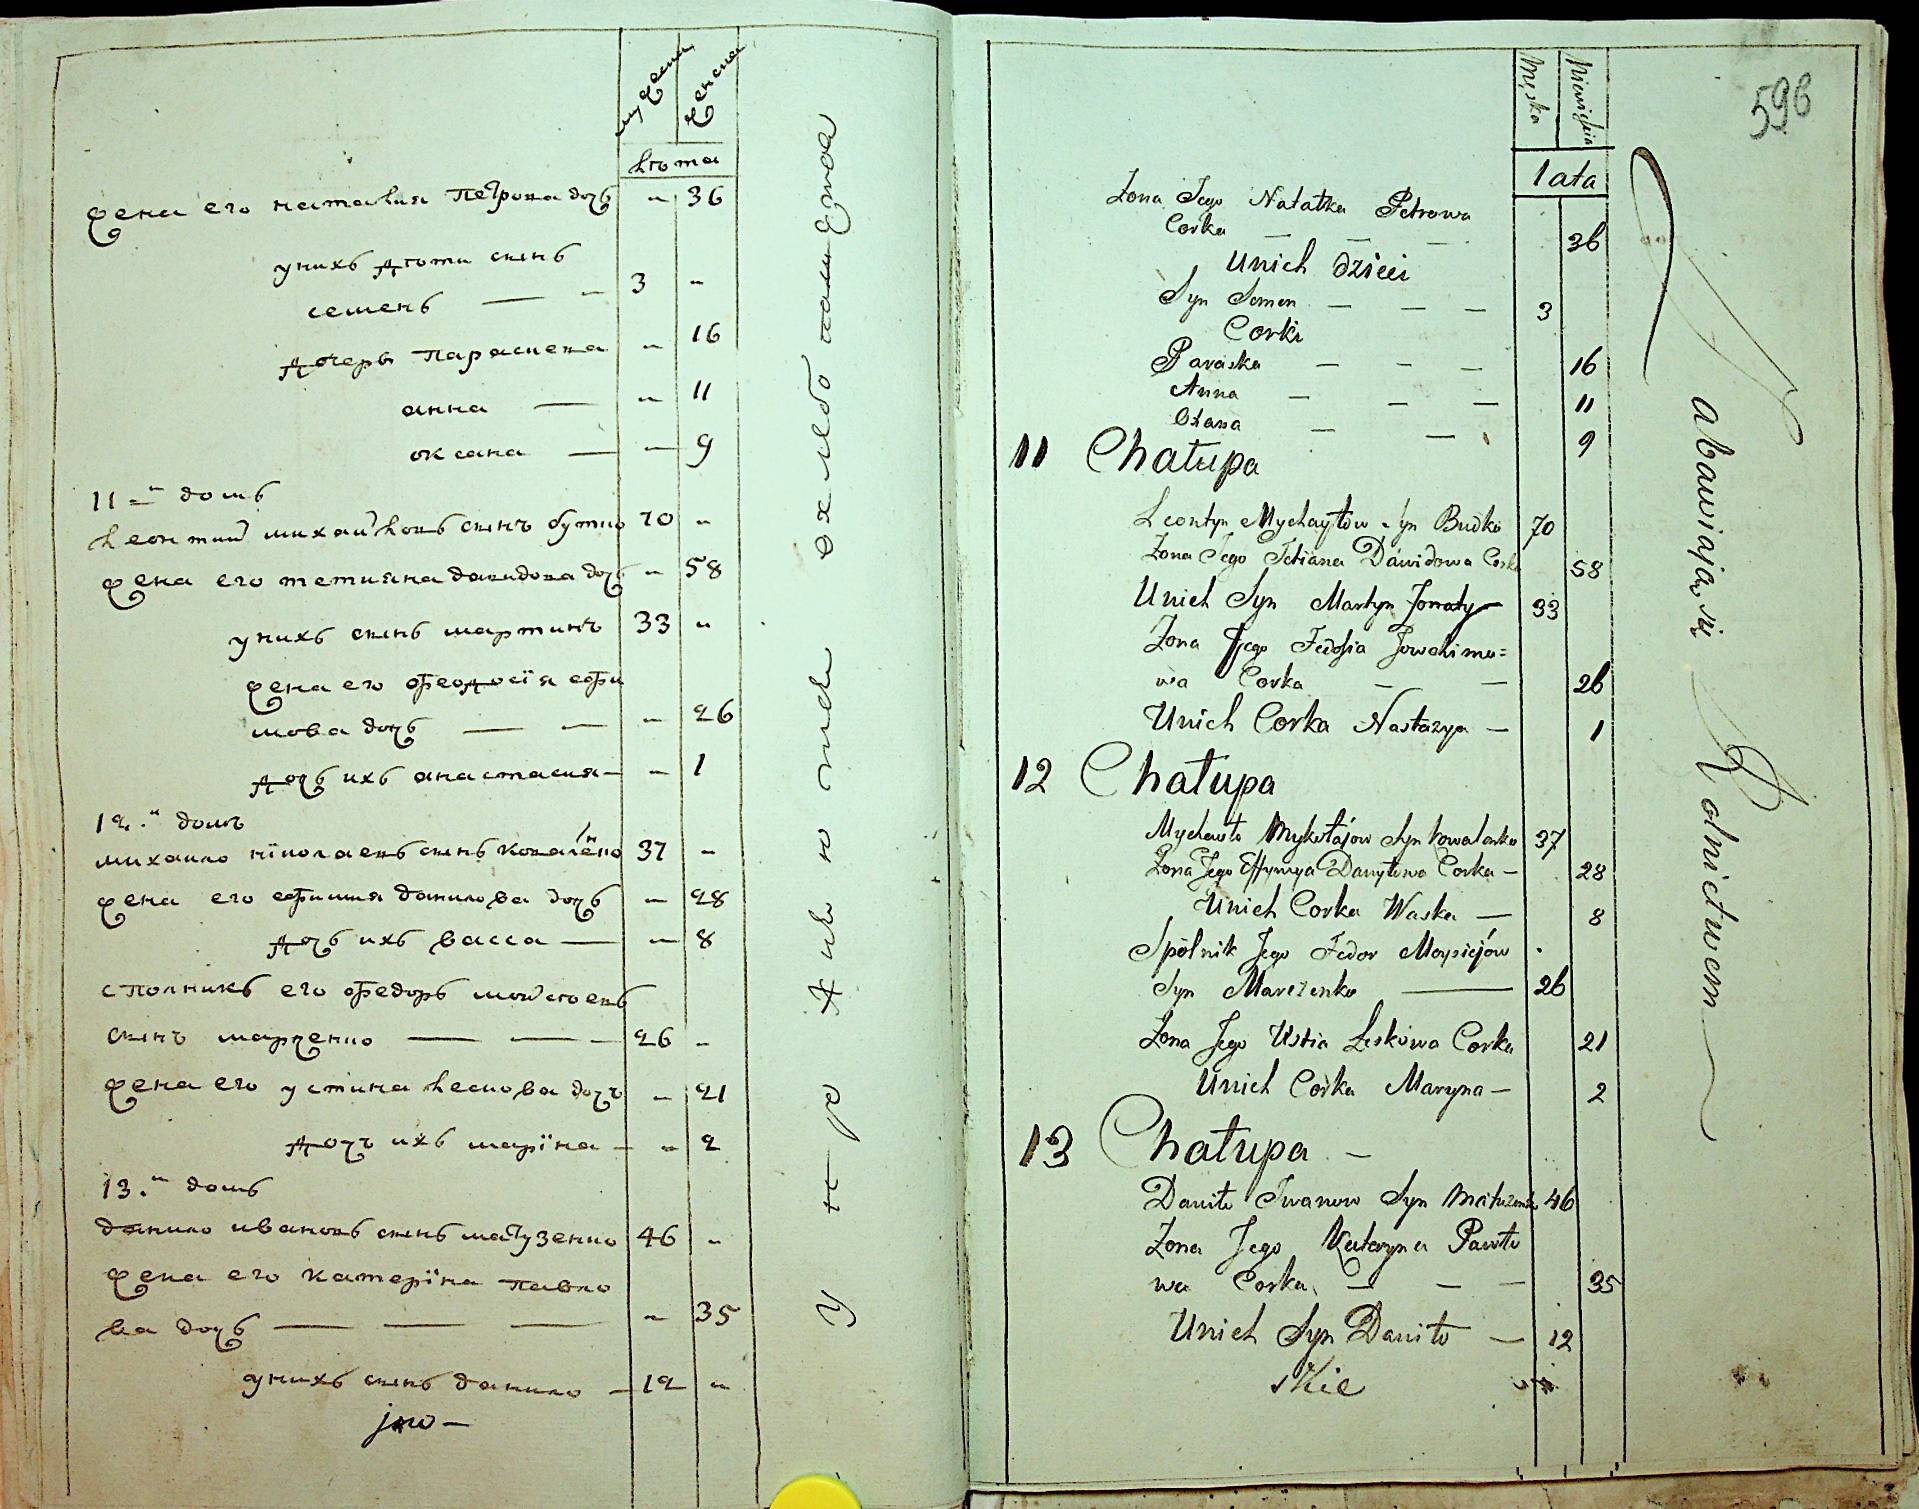 мужеска
женска
лѣта
жена его наталия Петрова дочь „ 36
унихъ дѣти сынъ
семенъ — — 3 „
дочеръ Параскева „ 16
анна — „ 11
оксана — — 9
11-й домъ
леонтий михайловъ сынъ бутко 70 „
жена его тетияна давидова дочь „ 58
унихъ сынъ мартинъ 33 „
жена его феодосїя ефи
мова дочь — — „ 26
дочь ихъ анастасия — „ 1
12-й домъ
михайло нїколаевъ сынъ коваленко 37 „
жена его ефимия данилова дочь — 28
дочь ихъ васса — — 8
сполникъ его федоръ мойсѣевъ
сынъ марченко — — — 26 „
жена его устина лескова дочъ „ 21
дочъ ихъ марїна — „ 2
13-й домъ
данило ивановъ сынъ матузенко 46 „
жена его катерїна павло
ва дочь — — — „ 35
унихъ сынъ данило — 12 „
упражняются хлебопашествомъ
596
Męska
Niewieścia
lata
Zona Jego Natałka Petrowa
Corka — — — 36
Unich dzieci
Syn Semen — — — 3
Corki
Paraska — — — 16
Anna — — — 11
Oxana — — 9
11 Chałupa
Leontyn Mychayłow Syn Budko 70
Zona Jego Tetiana Dawidowa Corka 58
Unich Syn Martyn Zonaty 33
Zona Jego Fedosia Jowchimo=
wa Corka — — 26
Unich Corka Nastazya — 1
12 Chałupa
Mychaiło Mykołajow Syn Kowalenko 37
Zona Jego Effymya Danyłowa Corka — 28
Unich Corka Waska — 8
Spólnik Jego Fedor Moysiejów
Syn Marczenko — 26
Zona Jego Ustia Leskowa Corka 21
Unich Corka Maryna — 2
13 Chałupa —
Daniło Iwanow Syn Matuzenko 46
Zona Jego Katarzyna Pawło
wa Corka — — — 35
Unich Syn Daniło — 12
Zabawiają się Rolnictwem